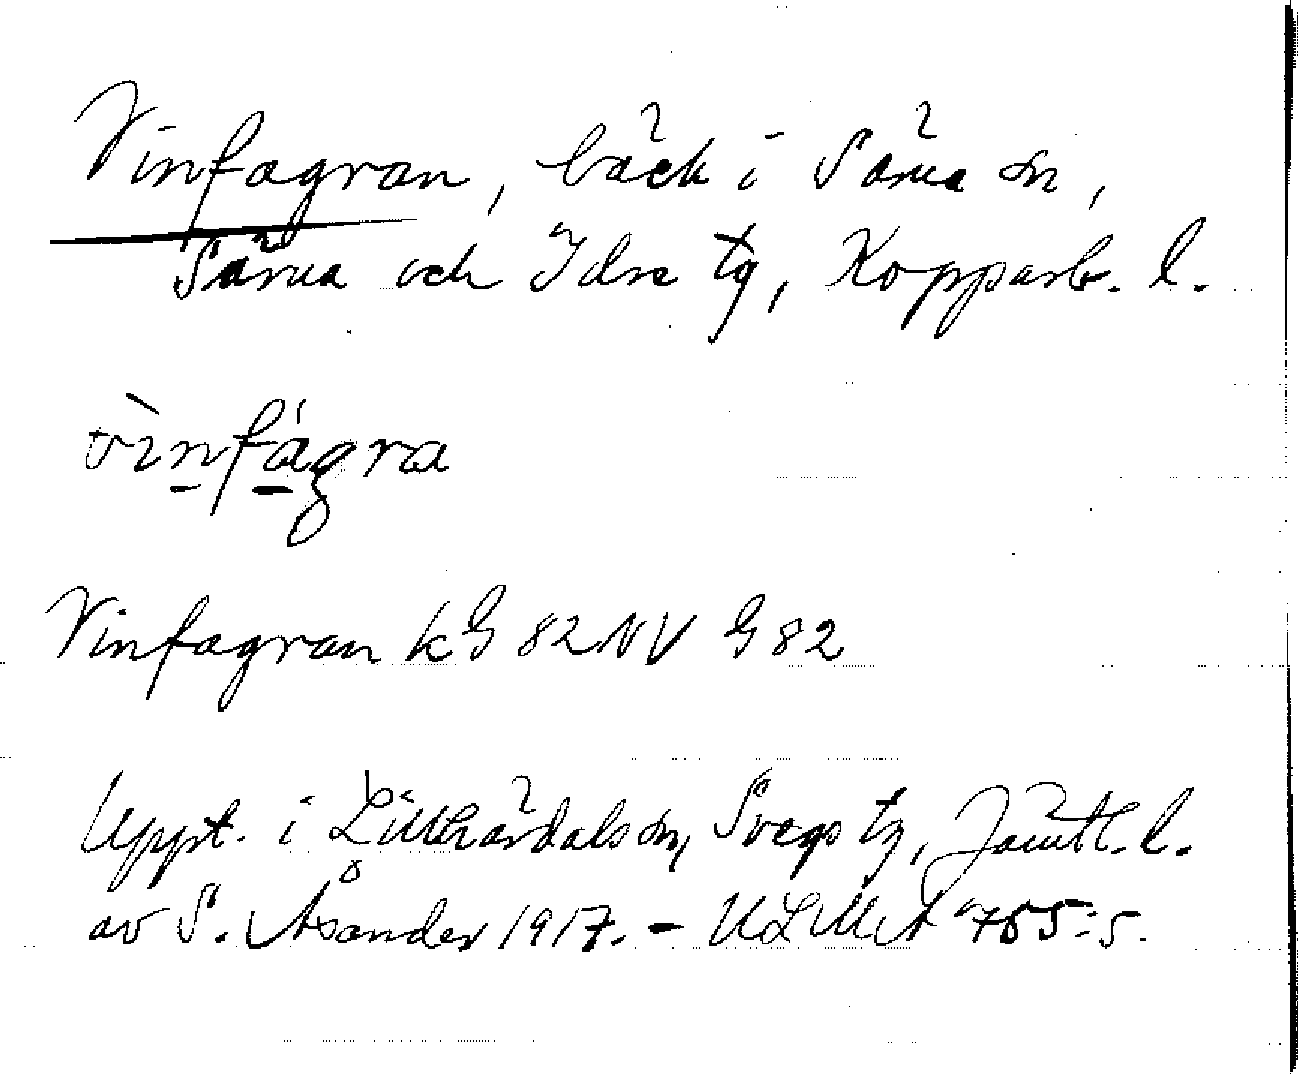 Vinfagran, bäck i Särna sn,
Särna och Idre tg, Kopparb. l.
vìnfágra
Vinfagran kG 82 NV G 82
Uppt. i Lillhärdals sn, Svegs tg, Jämtl. l.
av S. Åsander 1917. - ULMA 755:5.